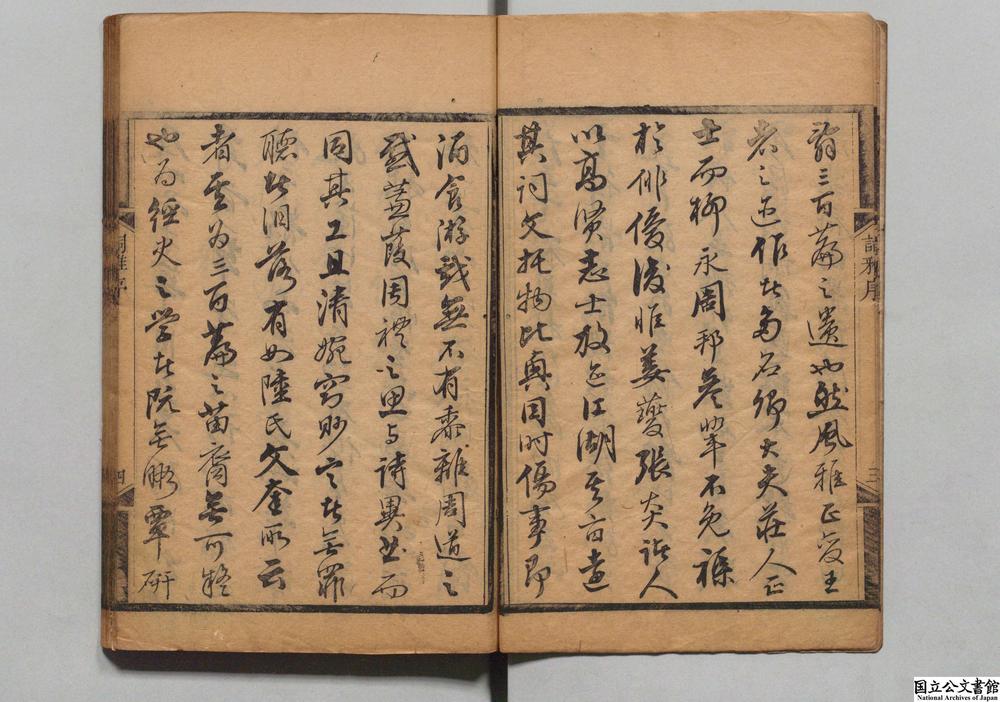 翦三百篇之遺也然風雅正變王
者之迹作者多名卿大夫莊人正
士而柳永周邦彥輩不免襍
於俳優後唯姜夔張炎諸人
以高賢志士放迹江湖其旨遠
其詞文托物比興因時傷事即
酒食游戲無不有黍離周道之
感蓋葭周禮之思与詩異曲而
同其工且清婉窈眇言者無罪
聽者泪落有如陸氏文奎所云
者其為三百篇之苗裔無可疑
也為經史之學者阮無彫覃研
詞雅序
三
詞雅序
四
国立公文書館
National Archives of Japan